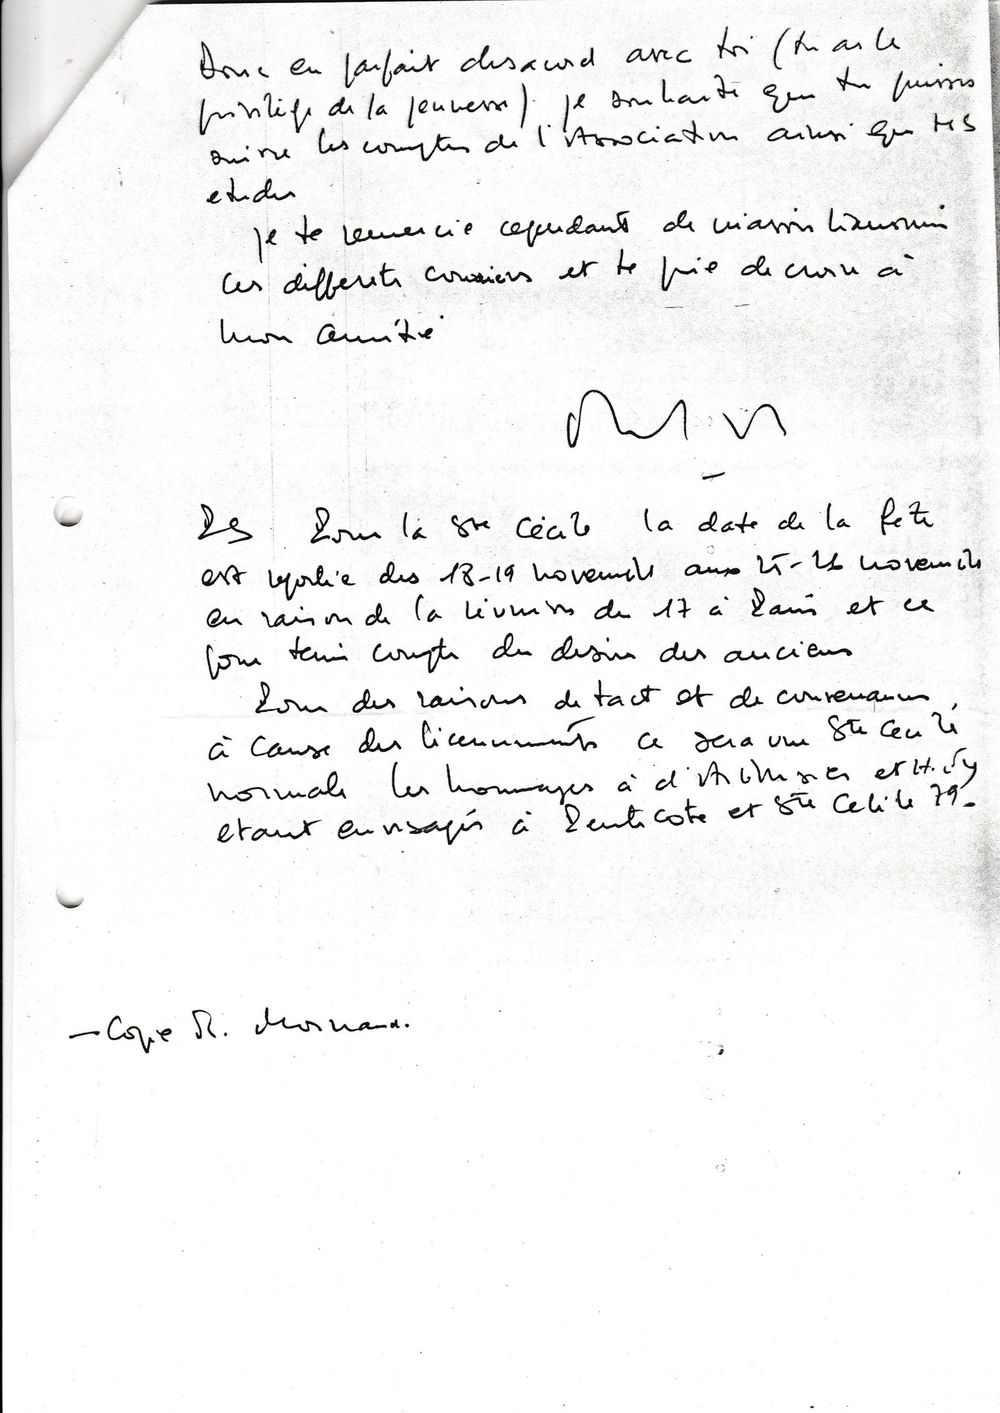 Donc en parfait désacord avec toi (tu as le
privilège de la jeunesse) je souhaite que tu puisses
suivre les comptes de l'Association ainsi que tes
etudes
je te remercie cependant de m'avoir transmis
ces differents courriers et te prie de croire à
mon amitié
PS Pour la Ste Cécile la date de la fete
est reportée des 18-19 novembre aux 25-26 novembre
en raison de la réunion du 17 à Paris et ce
pour tenir compte du desir des anciens
Pour des raisons de tact et de convenances,
à cause des licenciements ce sera une Ste Cecile
normale les hommages à d' et H.
etant envisagés à Pentecote et Ste Cecile 79.
- Copie R.